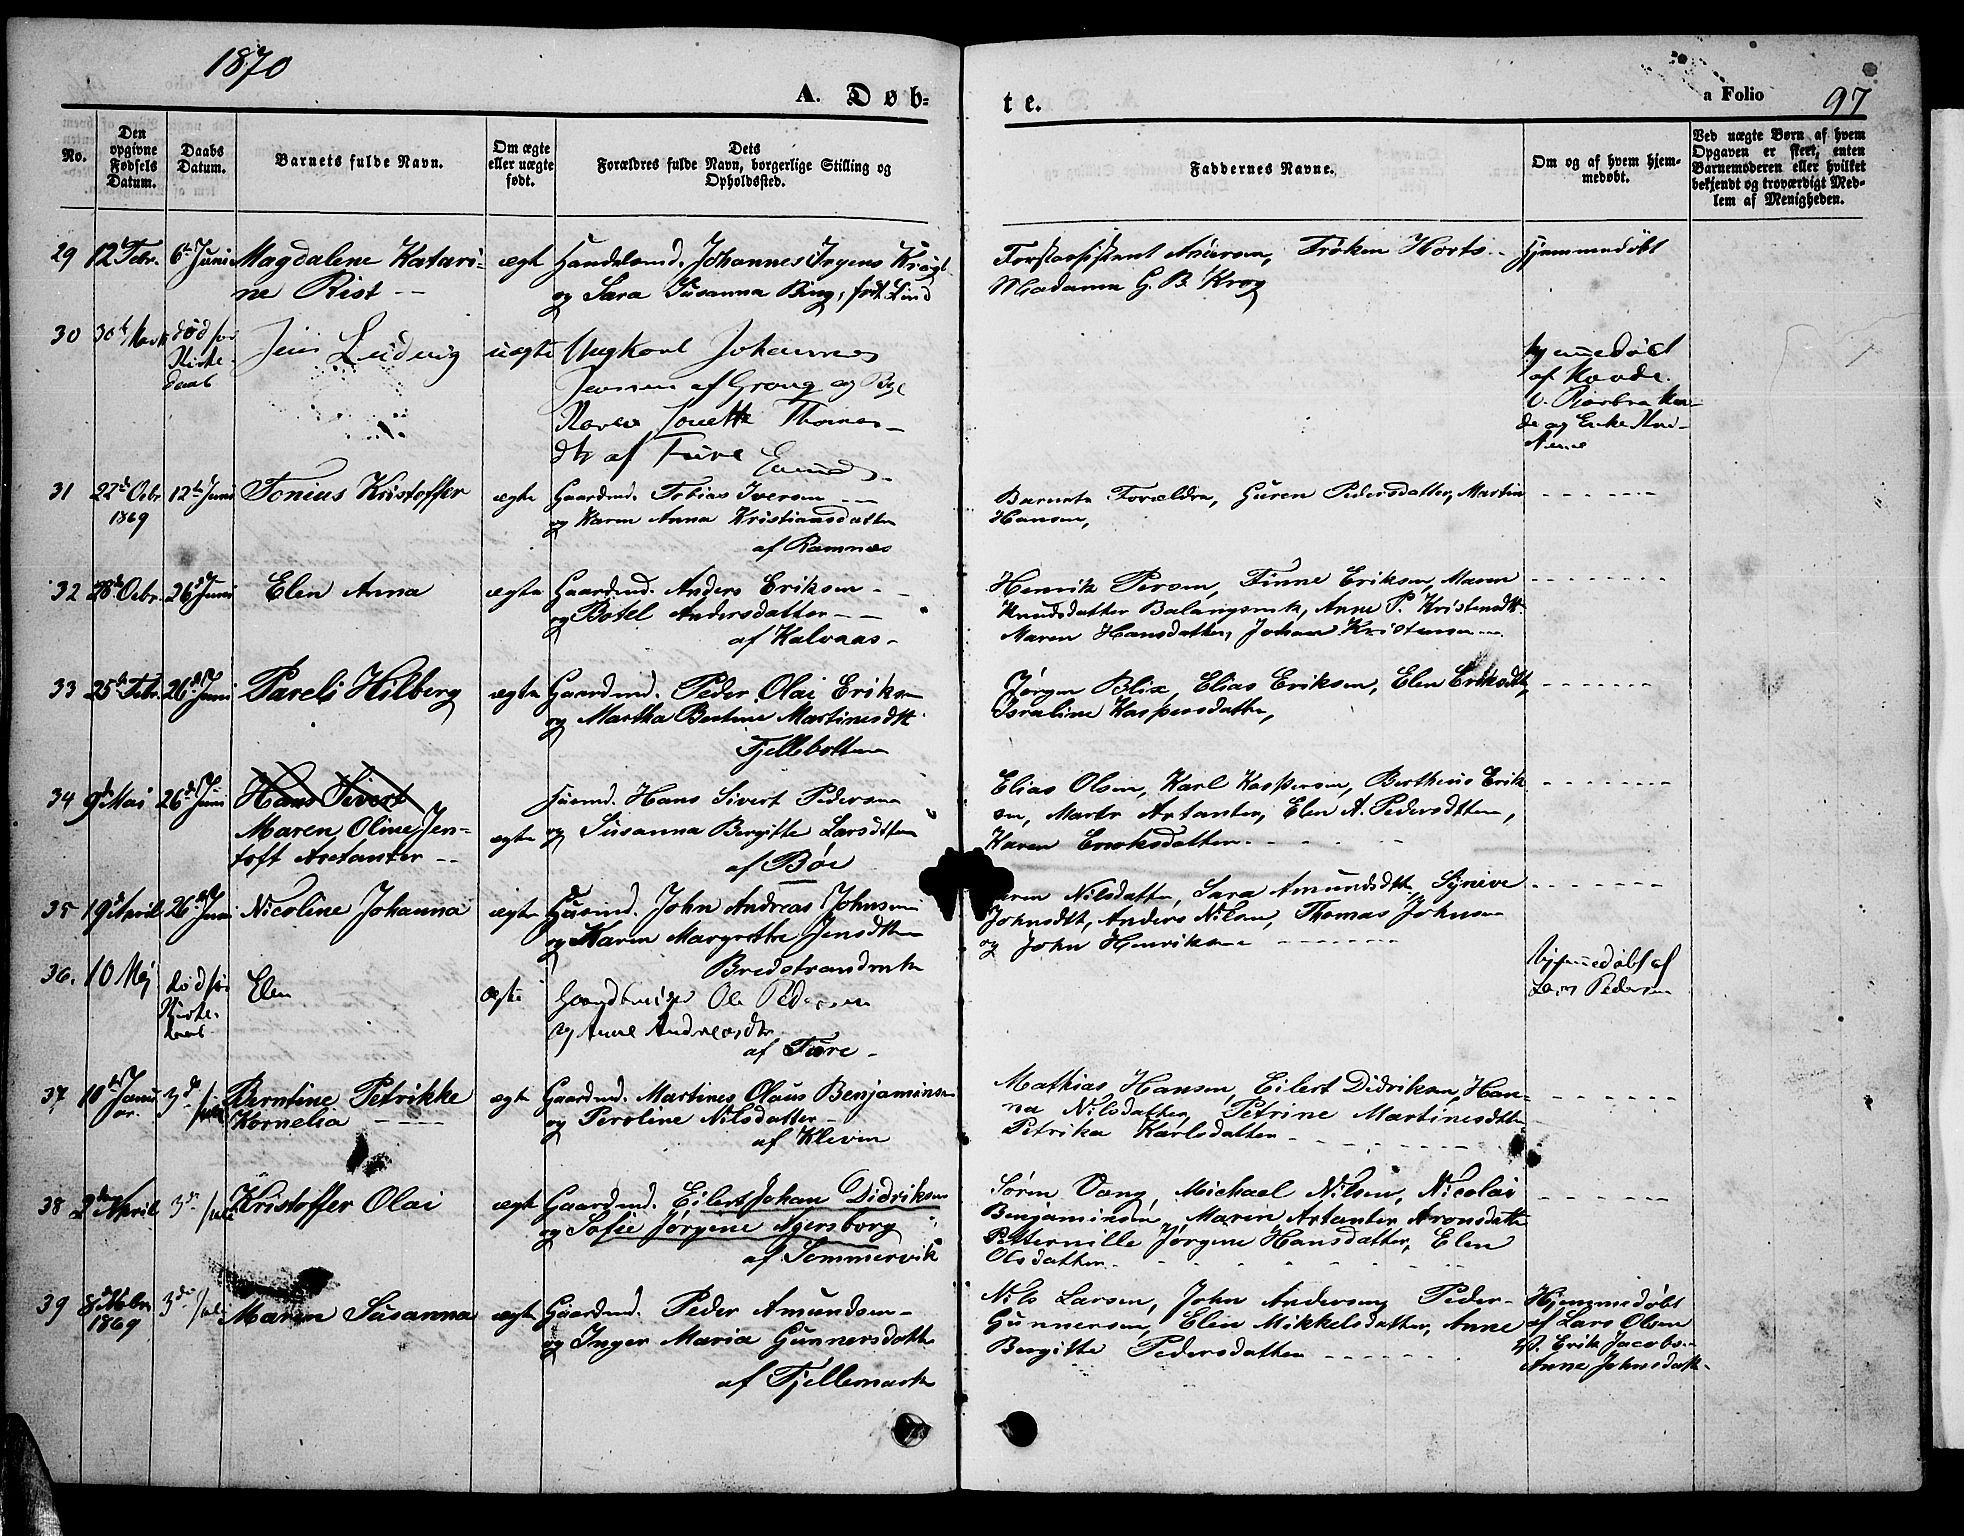 1870
A. Døb=
te.
a Folio 97
No.
Den opgivne Fødsels Datum.
Daabs Datum.
Barnets fulde Navn.
Om ægte eller uægte født.
Dets Forældres fulde Navn, borgerlige Stilling og Opholdssted.
Faddernes Navne.
Om og af hvem hjemmedøbt.
Ved uægte Børn af hvem Opgaven er skeet, enten Barnemoderen eller hvilket bekjendt og troværdigt Medlem af Menigheden.
29 12 Febr. 6te Juni Magdalene Katari- ægt Handelsmd. Johannes
ne Rist -- og Sara Susanna Bing, født Lind
Forstassistent Andersen, Frøken Horts -- Hjemmedøbt
Madama G. B. Krog
30 død før Kirke- daab Jens Ludvig uægte Ungkarl Johannes
Jensen af Grong og Pige
Thomas-
dtr af Fure
hjemmedøbt
af
31 22de Octbr 1869 12te Juni Tonius Kristoffer ægte Gaardmd. Tobias Iversen
og Karen Anna Kristiansdatter
af Ramnæs
Barnets Forældre, Guren Pedersdatter, Martin
Hansen,
32 28de Octbr. 26de Juni Elen Anna ægte Gaardmd. Anders Eriksen -
og Botel Andersdatter --
af Kalvaas -
Henrik Person, Finne Eriksen, Maren
Knudsdatter Balangsmk, Anne P. Kristensdtr.
Maren Hansdatter, Johan Kristensen
33 25de Febr. 26de Juni Pareli Hilberg ægte Gaardmd. Peder Olai Eriksen
og Martha Bertine Martinesdtt.
Fjellebotten
Jørgen Blix, Elias Eriksen, Elen Eriksdtt,
Israline Kaspersdatter,
34 9de Mai 26de Juni Hans Sivert Husmd. Hans Sivert Pedersen
Maren Oline Jen- ægte og Susanna Bergitte Larsdtter
toft Aretanter -- af Bøe
Elias Olsen, Karl Kaspersen, Bertheus Erik-
sen, Elen A. Pedersdtter,
Karen Eriksdatter
35 19de April 26de Juni Nicoline Johanna ægte Husmd. John Andreas Johnsen
og Karen Margrethe Jensdtter
Bredstrandmk
Karen Nilsdatter, Sara Amundsdtt. Syneve
Johnsdtt, Anders Nilsen, Thomas Johnsen
og John Henriksen
36. 10 Mej død før Kirke- daab Elen ægte Gaardbruger Ole Pedersen
og Anne Andreasdtr
af Fure -
Hjemmedøbt af
Lars Pedersen
37 10de Janu- ar. 3de Juli Berntine Petrikke ægte Gaardmd. Martines Olaus Benjaminsen
Kornelia og Peroline Nilsdatter
af Kleven
Mathias Hansen, Eilert Didriksen, Han-
na Nilsdatter, Petrine Martinesdtter
Petrika Karlsdatter
38 2den April 3de Juli Kristoffer Olai ægte Gaardmd. Eilert Johan Didriksen
og Sofie Jørgene Agersborg
af Sommervik
Søren Vang, Michael Nilsen, Nicolai
Benjaminsen, Maren Artanter Aronsdatter
Petternille Jørgine Hansdatter, Elen
Olsdatter
39 8de Novbr. 1869 3de Juli Maren Susanna ægte Gaardmd. Peder Amundsen -
og Inger Maria Gunnersdatter
af Fjellemark
Nils Larsen, John Andersen, Peder
Gunnersen, Elen Mikkelsdatter, Anne
Bergitte Pedersdatter
Hjemmedøbt
af Lars Olsen
V. Erik Jacobs-
Anne Johnsdatt-